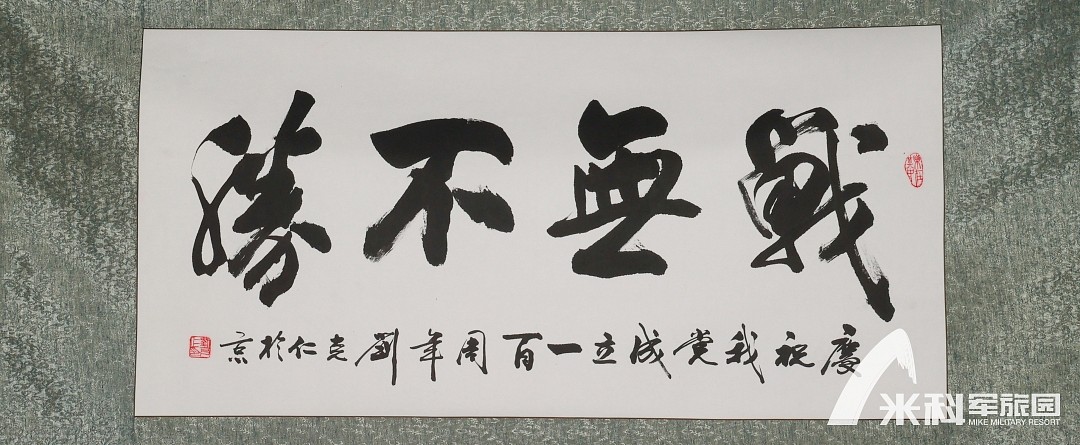 戰無不勝
慶祝我黨成立一百周年劉克仁於京
米科军旅园
MIKE MILITARY RESORT